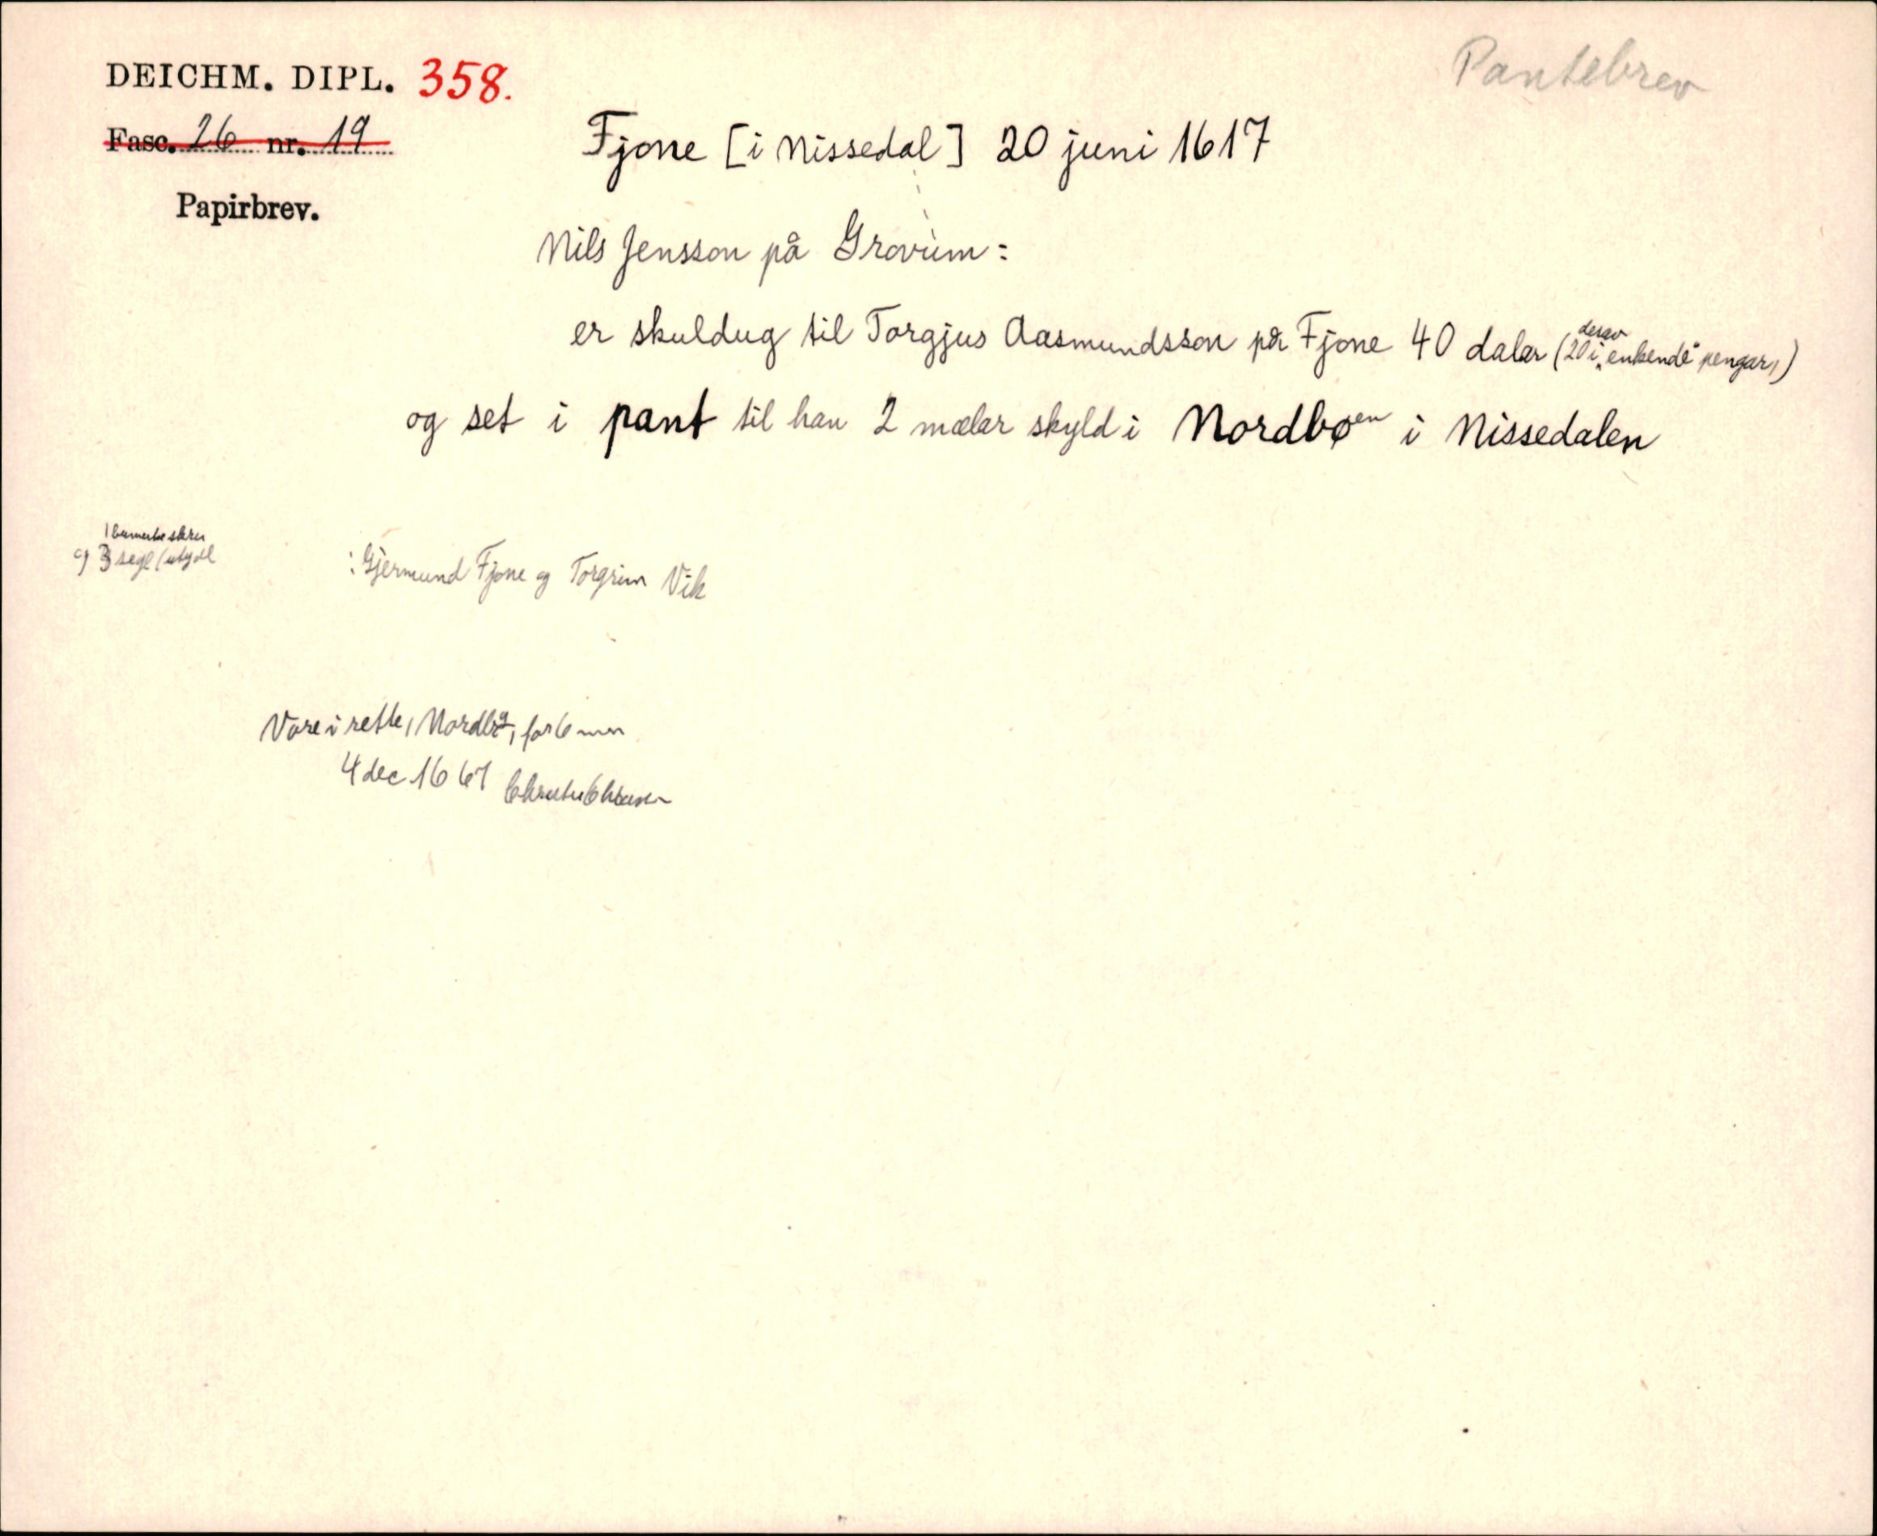 DEICHM. DIPL. 358.
Pantebrev
Fasc. 26 nr. 19
Fjone [i Nissedal] 20 juni 1617
Papirbrev.
Nils Jensson på Grovum:
er skuldug til Torgjus Aasmundsson på Fjone 40 dalar (derav 20 i „enkende" pengar,)
og set i pant til han 2 mælar skyld i Nordbøen i Nissedalen
og 3 segl
: Gjermund Fjone og Torgrim Vik
Vore i rette, for 6 men
4 dec 1661